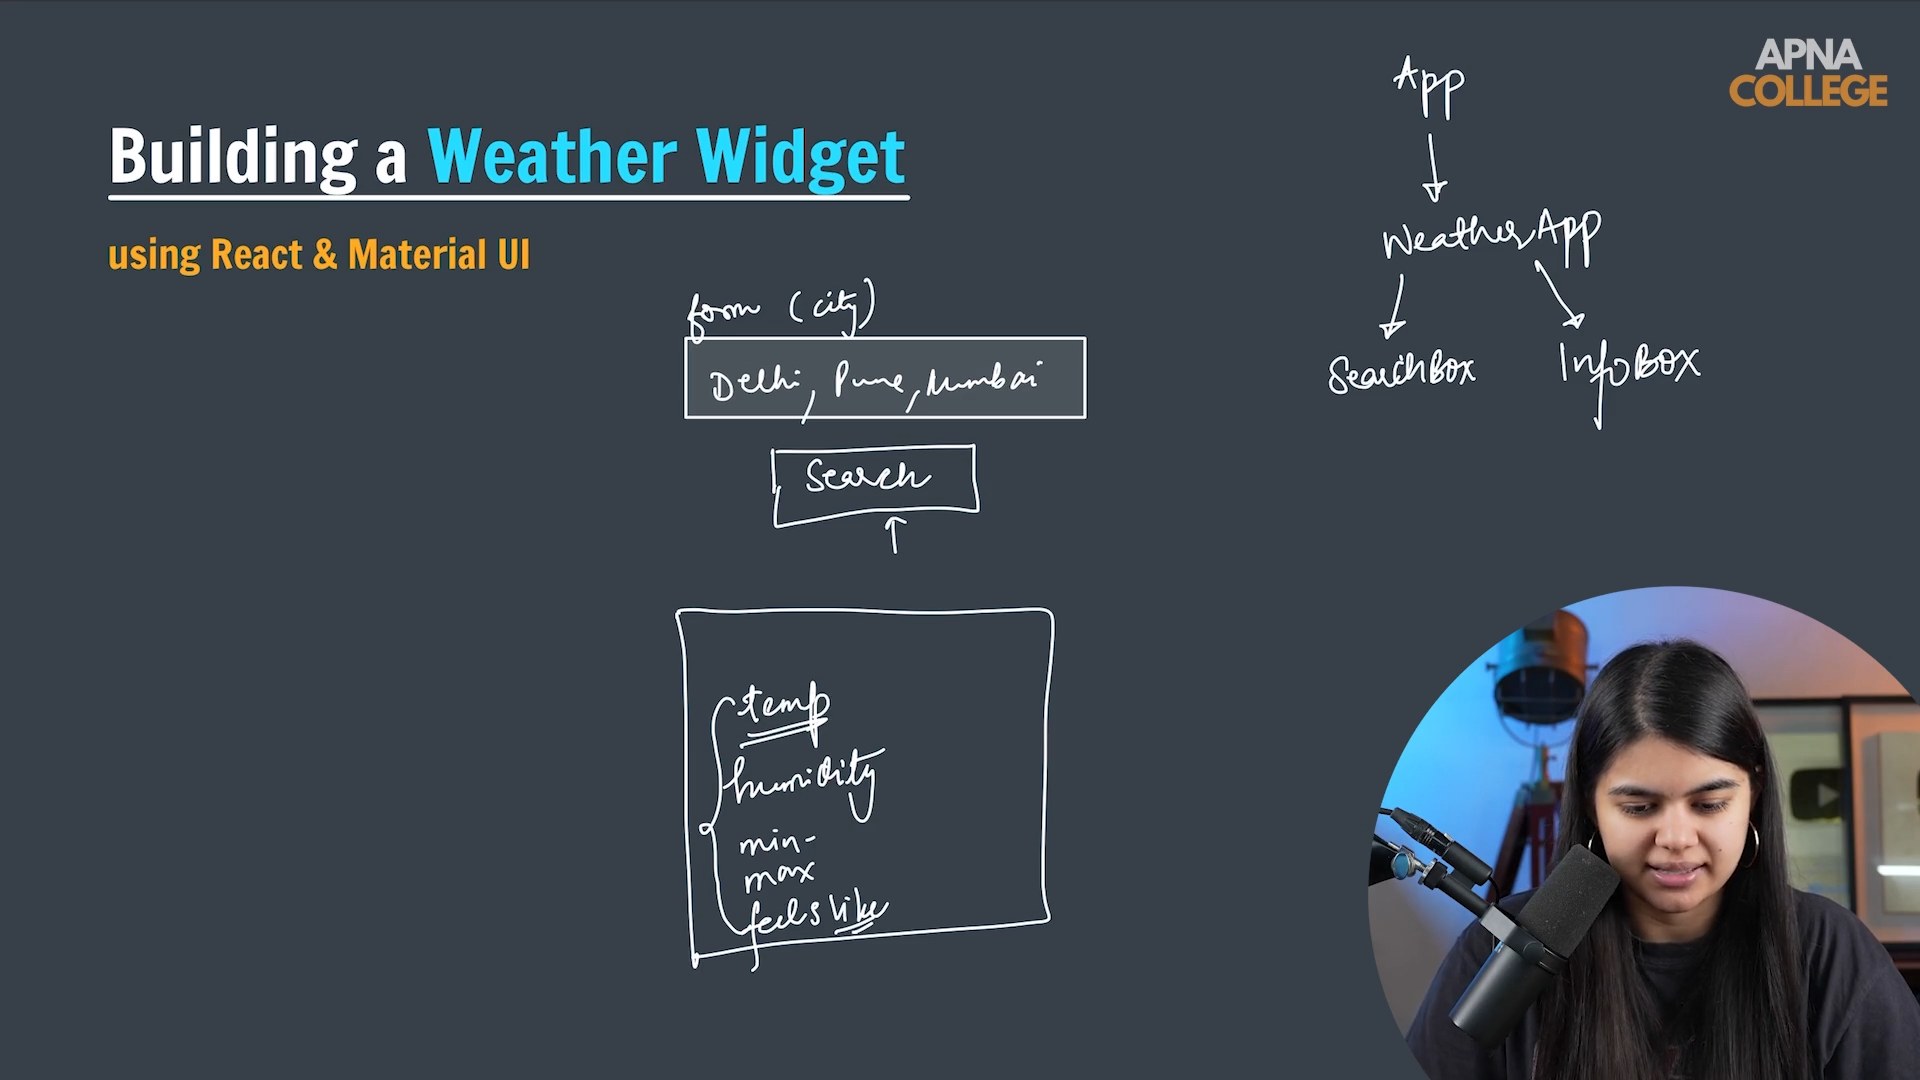 APNA
COLLEGE
Building a Weather Widget
using React & Material UI
form (city)
Delhi, Pune, Mumbai
Search
temp
humidity
min-
max
feels like
App
WeatherApp
SearchBox
InfoBox